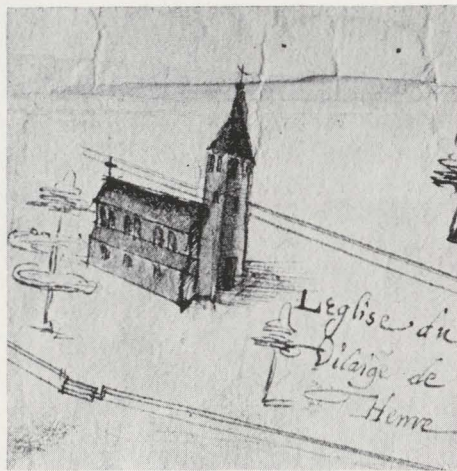 Leglise du
Vilaige de
Henre